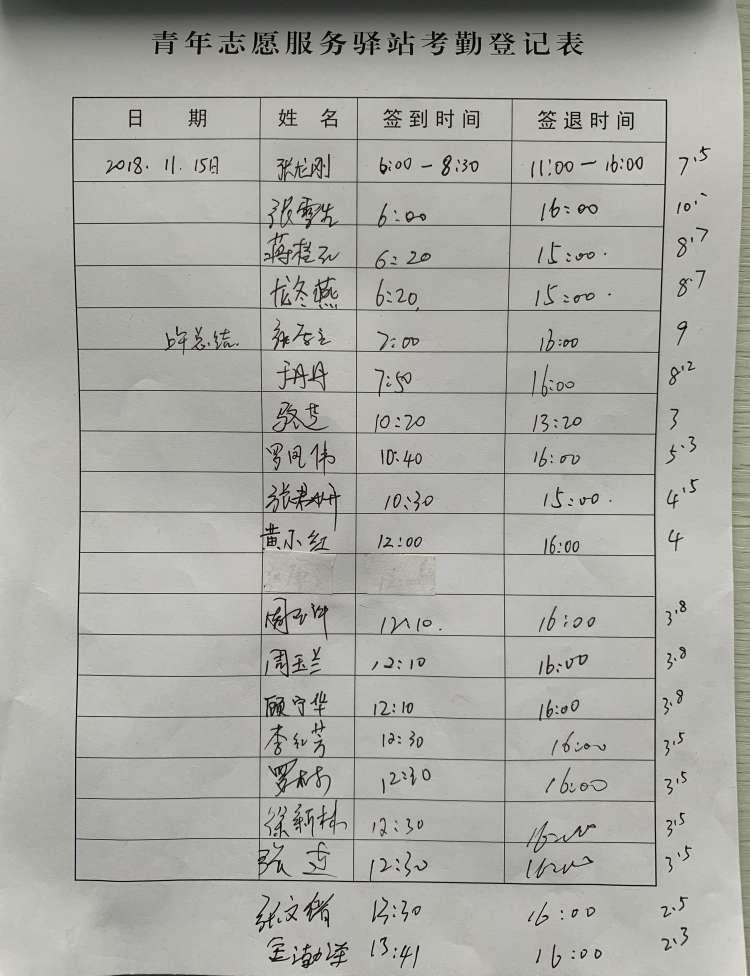 青年志愿服务驿站考勤登记表
日 期 姓 名 签到时间 签退时间
2018.11.15日 张龙刚 6:00-8:30 11:00-16:00 7.5
张雪 6:00 16:00 10
蒋桂 6:20 15:00. 8.7
龙冬燕 6:20. 15:00. 8.7
上午总结 7:00 16:00 9
于丹丹 7:50 16:00 8.2
10:20 13:20 3
罗凤伟 10:40 16:00 5.3
张 10:30 15:00. 4.5
黄小红 12:00 16:00 4
周 12:10. 16:00 3.8
周玉兰 12:10 16:00 3.8
顾守华 12:10 16:00 3.8
李红芳 12:30 16:00 3.5
罗 12:30 16:00 3.5
徐新林 12:30 16:00 3.5
张 12:30 16:00 3.5
张文 13:30 16:00 2.5
13:41 16:00 2.3